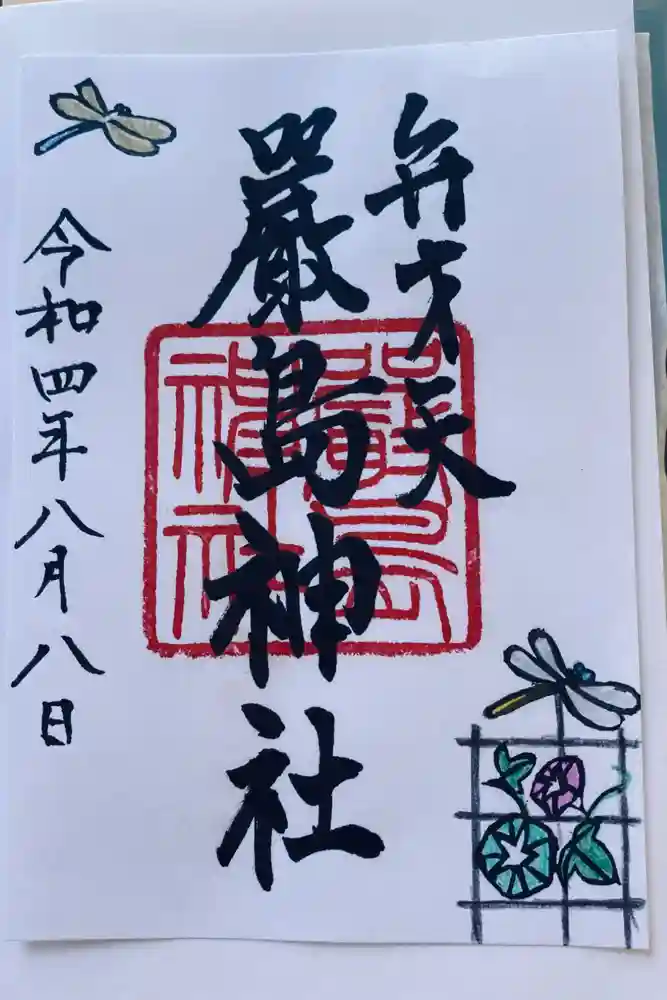 弁才天
嚴島神社
嚴島
神社
令和四年八月八日